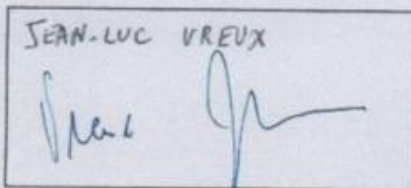 JEAN-LUC VREUX